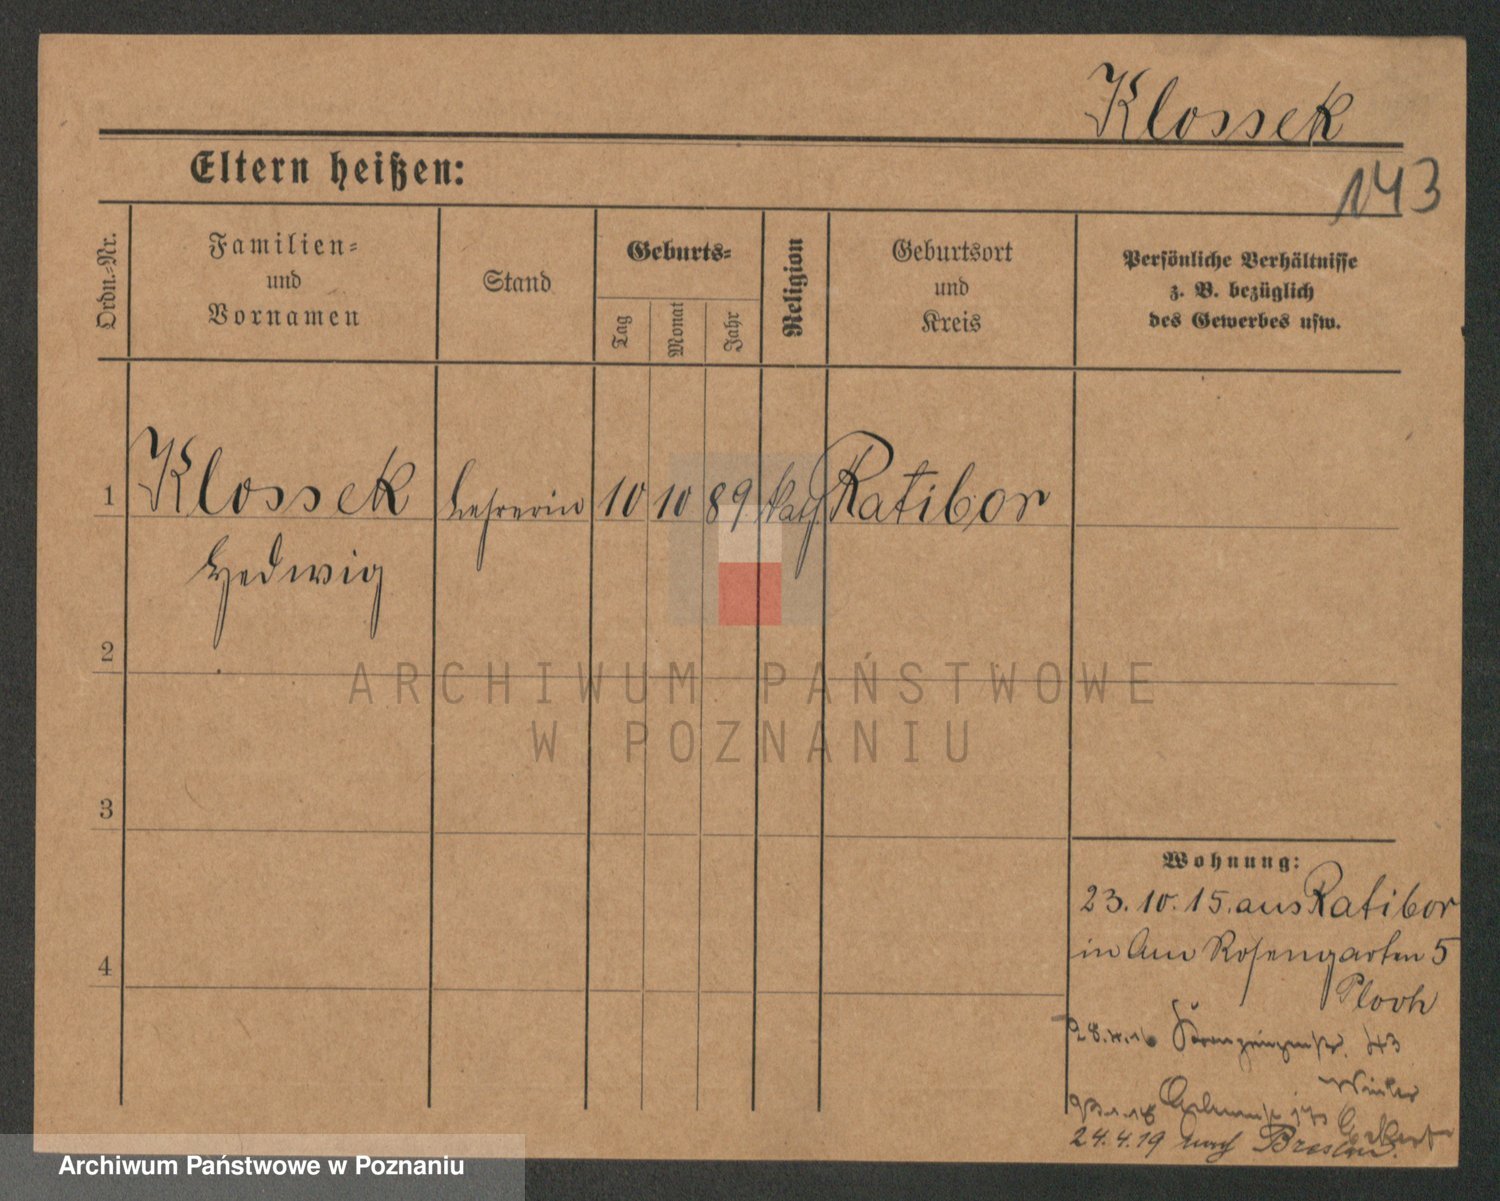 Klossek
143
Eltern heißen:
Ordn.-Nr.
Familien-
und
Vornamen
Stand
Geburts-
Tag
Monat
Jahr
Religion
Geburtsort
und
Kreis
Persönliche Verhältnisse
z. B. bezüglich
des Gewerbes usw.
1 Klossek Lehrerin 10 10 89 kath. Ratibor
Hedwig
2
3
4
Wohnung:
23.10.15. aus Ratibor
in Am Rosengarten 5
43
Winkler
24.4.19 nach Breslau.
ARCHIWUM PAŃSTWOWE
W POZNANIU
Archiwum Państwowe w Poznaniu